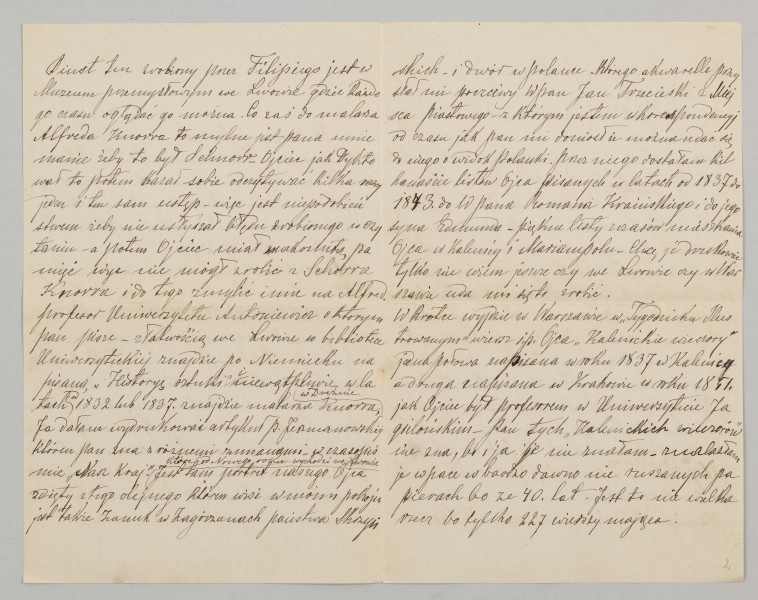 Biust ten zrobiony przez Filipiego jest w
Muzeum przemysłowym we Lwowie gdzie każde
go czasu oglądać go można. Co zaś do malarza
Alfreda Knorra to mylne jest pana mnie
manie żeby to był Schnorr Ojciec jak dykto
wał to potem kazał sobie odczytywać kilka razy
jeden i ten sam ustęp – więc jest niepodobień
stwem żeby nie usłyszał błędu zrobionego w czy
taniu – a potem Ojciec miał znakomitą pa
mięć więc nie mógł zrobić z Schnorra
Knorra i do tego zmylić imie na Alfred.
profesor Uniwersytetu Antoniewicz o którym
pan pisze – z łatwością we Lwowie w bibliotece
Uniwersyteckiej znajdzie po Niemiecku na
pisaną „Historyę sztuki" i niewątpliwie w la
tach 1832 lub 1837. znajdzie malarza Knorra,
w Dreźnie
Ja dałam wydrukować artykuł P. Giermanowskiej
którem pan zna z różnemi zmianami – w czasopiś
mie „Nasz Kraj" jest tam portret naszego Ojca
które od Nowego roku wychodzi we Lwowie
zdjęty z tego olejnego którem wisi w moim pokoju
jest także Zamek w Zagórzanach państwa Skrzyń
skich – i dwór w polance którego akwarelle przy
słał mi poczciwy Wpan Jan Trzecieski z Miej
sca Piastowego – z którym jestem w korespondencyj
od czasu jak pan mi doniósł iż można udać się
do niego o widok polanki. przez niego dostałam kil
kanaście listów Ojca pisanych w latach od 1837 do
1843. do W pana Romana Kraińskiego i do jego
syna Edmunda – piękne listy z czasów mieszkania
Ojca w Kalenicy i Mariampolu – Chcę je drukować
tylko nie wiem jeszcze czy we Lwowie czy w War
szawie uda mi się to zrobić.
W krótce wyjdzie w Warszawie w „Tygodniku Illus
trowanym" wiersz śp. Ojca „Kalenickie wieczory"
jedna połowa napisana w roku 1837 w Kalenicy
a druga napisana w Krakowie w roku 1851.
jak Ojciec był profesorem w Uniwersytecie Ja
gielońskim – pan tych „Kalenickich wieczorów"
nie zna, bo i ja je nie znałam – znalazłam
je w pace w bardzo dawno nie ruszanych pa
pierach bo ze 40. lat. Jest to nie wielka
rzecz bo tylko 227 wierszy mająca.
2